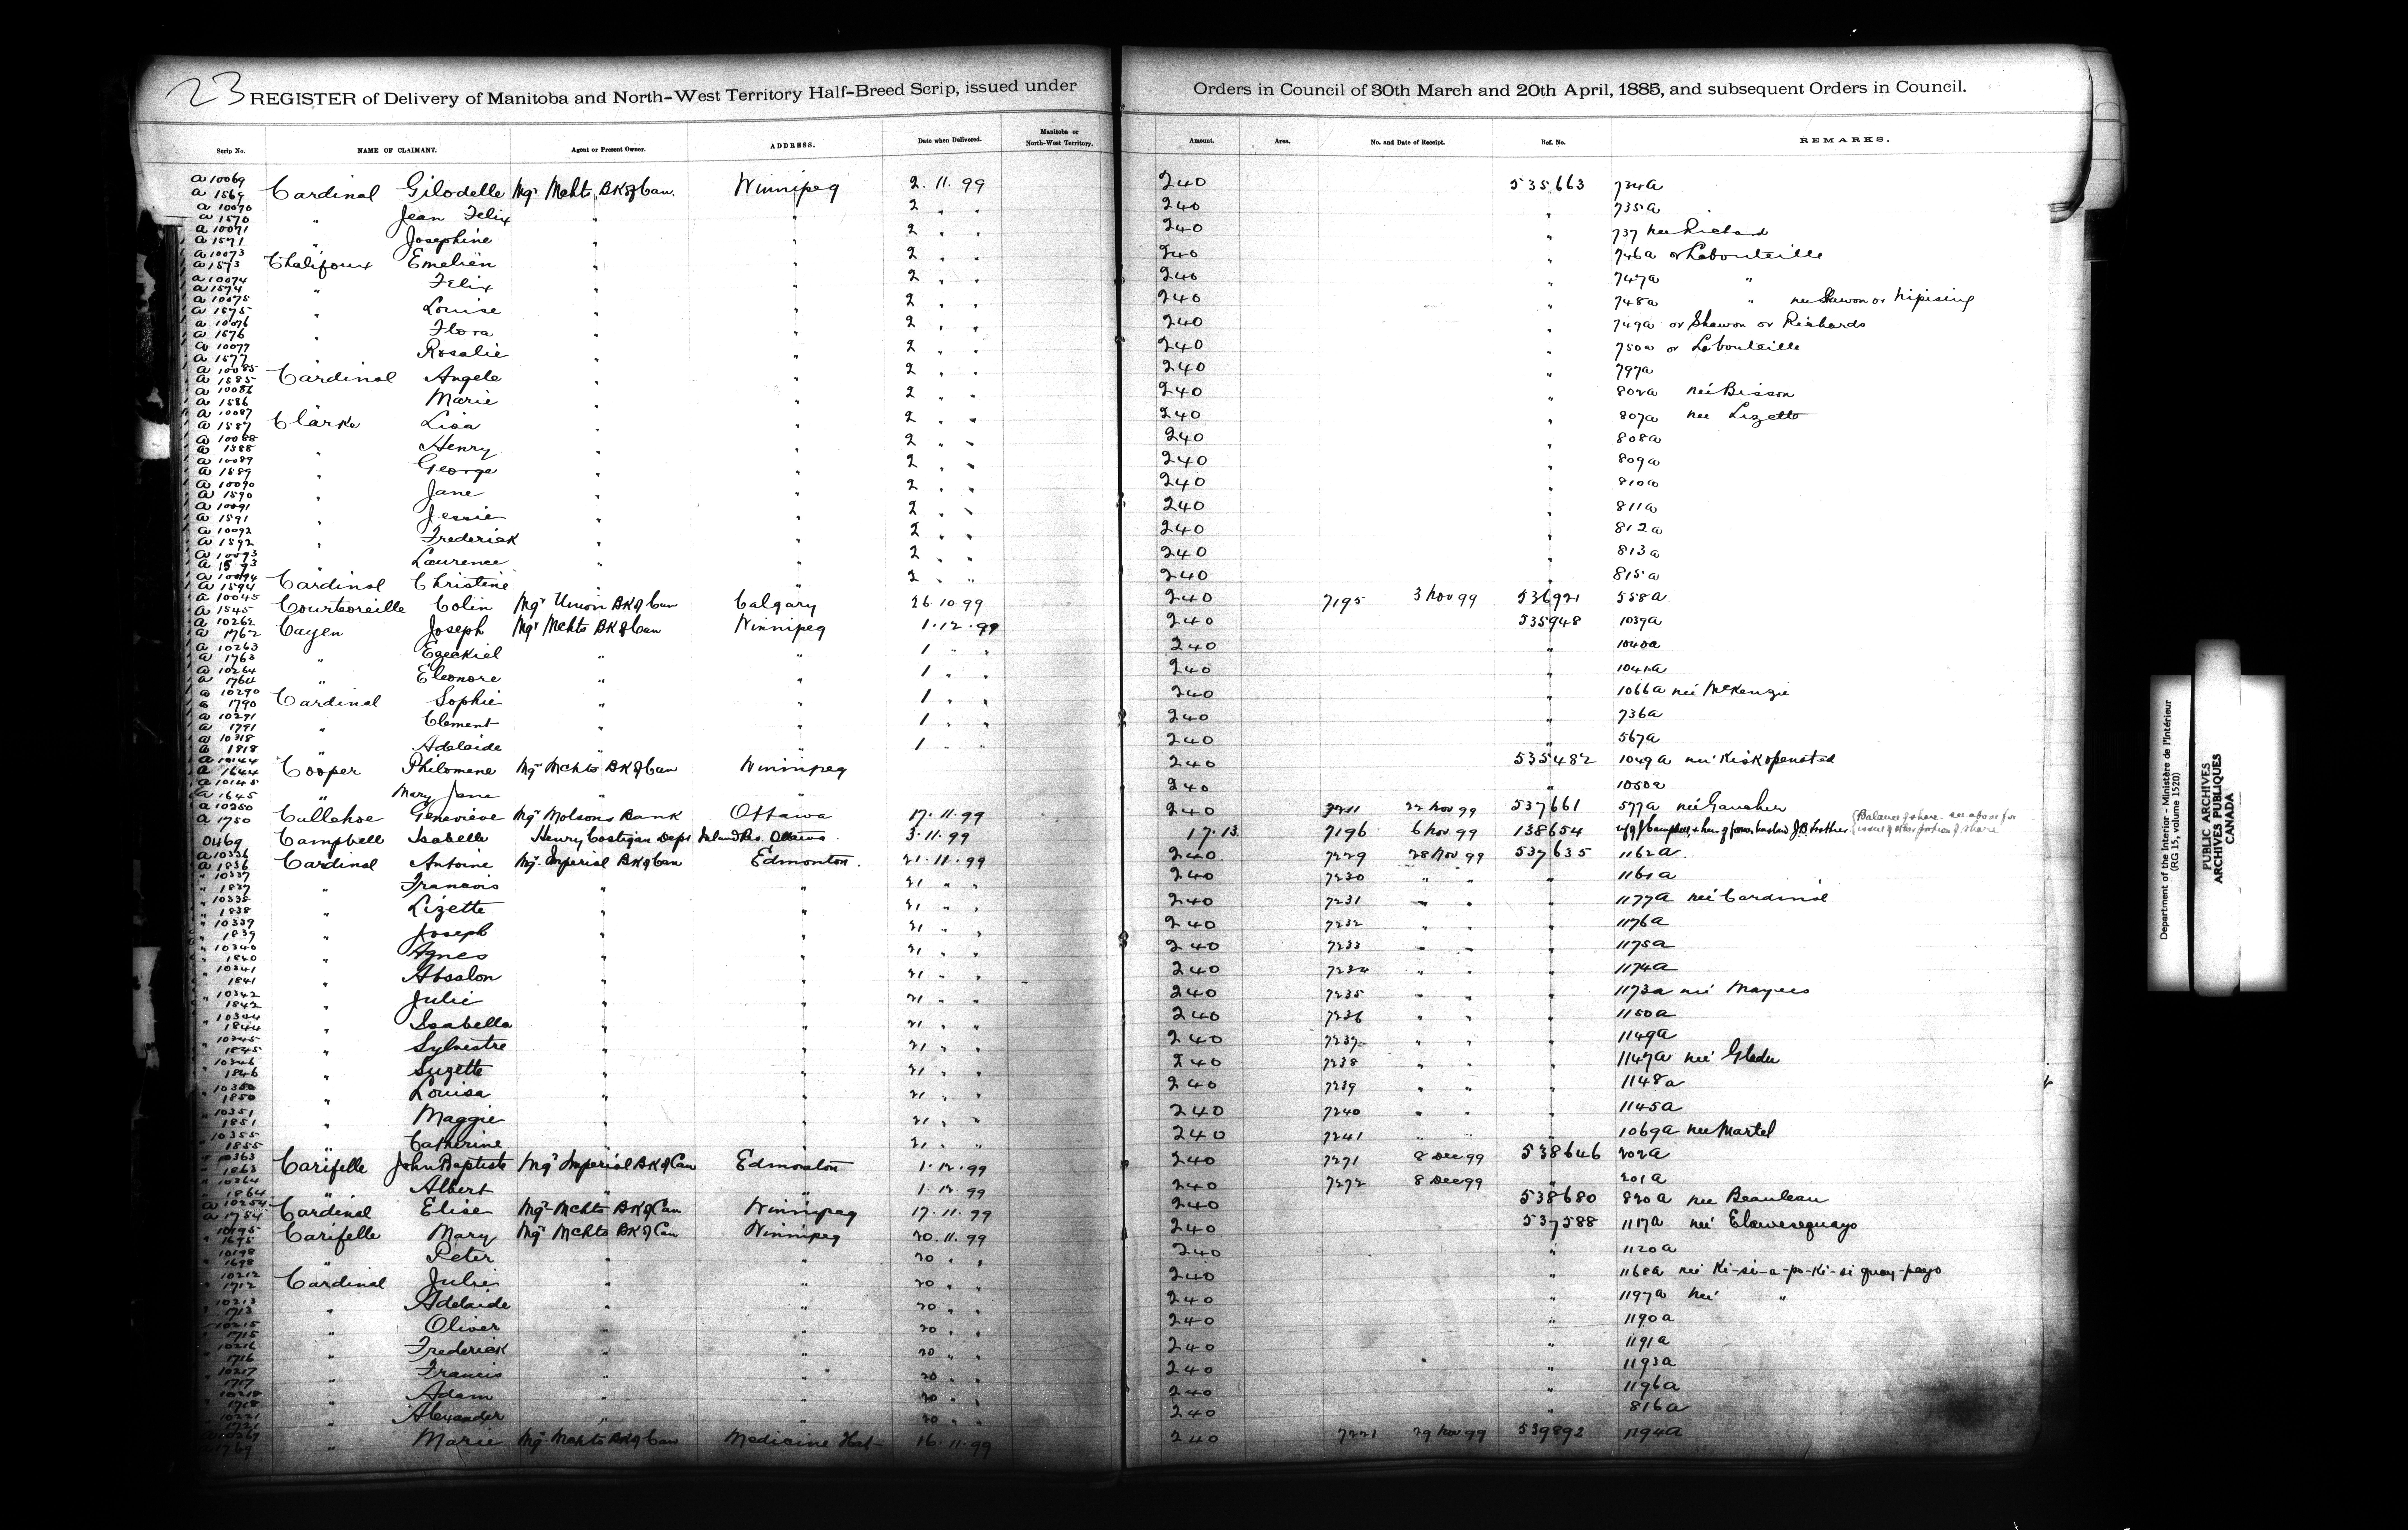 23 REGISTER of Delivery of Manitoba and North-West Territory Half-Breed Scrip, issued under Orders in Council of 30th March and 20th April, 1885, and subsequent Orders in Council.
Scrip No. NAME OF CLAIMANT. Agent or Present Owner. ADDRESS. Date when Delivered. Manitoba or North-West Territory. Amount. Area. No. and Date of Receipt. Ref. No. REMARKS.
a 10069 a 1569 Cardinal Gilodelle Mgr Mchts BK of Can. Winnipeg 2.11.99 240 535663 734a
a 10070 a 1570 " Jean Felix " " 2 " " 240 " 735a
a 10071 a 1571 " Josephine " " 2 " " 240 " 737 nee Richard
a 10073 a 1573 Chalifoux Emelien " " 2 " " 240 " 746a or Labouteille
a 10074 a 1574 " Felix " " 2 " " 240 " 747a "
a 10075 a 1575 " Louise " " 2 " " 240 " 748a " nee Shawon or Nipising
a 10076 a 1576 " Flora " " 2 " " 240 " 749a or Shawon or Richards
a 10077 a 1577 " Rosalie " " 2 " " 240 " 750a or Labouteille
a 10085 a 1585 Cardinal Angele " " 2 " " 240 " 797a
a 10086 a 1586 " Marie " " 2 " " 240 " 802a neé Bisson
a 10087 a 1587 Clarke Lisa " " 2 " " 240 " 807a nee Lizette
a 10088 a 1588 " Henry " " 2 " " 240 " 808a
a 10089 a 1589 " George " " 2 " " 240 " 809a
a 10090 a 1590 " Jane " " 2 " " 240 " 810a
a 10091 a 1591 " Jessie " " 2 " " 240 " 811a
a 10092 a 1592 " Frederick " " 2 " " 240 " 812a
a 10093 a 1593 " Laurence " " 2 " " 240 " 813a
a 10094 a 1594 Cardinal Christine " " 2 " " 240 " 815a
a 10045 a 1545 Courtoreille Colin Mgr Union BK of Can Calgary 26.10.99 240 7195 3 Nov 99 536921 558a
a 10262 a 1762 Cayen Joseph Mgr Mchts BK of Can Winnipeg 1.12.99 240 535948 1039a
a 10263 a 1763 " Ezeckiel " " 1 " " 240 " 1040a
a 10264 a 1764 " Eleonore " " 1 " " 240 " 1041a
a 10290 a 1790 Cardinal Sophie " " 1 " " 240 " 1066a neé McKenzie
a 10291 a 1791 " Clement " " 1 " " 240 " 736a
a 10318 a 1818 " Adelaide " " 1 " " 240 " 567a
a 10144 a 1644 Cooper Philomene Mgr Mchts BK of Can Winnipeg 240 535482 1049a neé Kiskopensted
a 10145 a 1645 " Mary Jane " " 240 " 1050a
a 10250 a 1750 Callehoe Genevieve Mgr Molsons Bank Ottawa 17.11.99 240 7211 22 Nov 99 537661 577a neé Gaucher
0469 Campbell Isabelle Henry Costigan Dept Inland Rev. Ottawa 3.11.99 17.13 7196 6 Nov. 99 138654 (Balance of share - see above for issue of other portion of share
a 10336 a 1836 Cardinal Antoine Mgr. Imperial BK of Can Edmonton. 21.11.99 240 7229 28 Nov 99 537635 1162a
" 10337 " 1837 " Francois " " 21 " " 240 7230 " " " 1161a
" 10338 " 1838 " Lizette " " 21 " " 240 7231 " " " 1177a neé Cardinal
" 10339 " 1839 " Joseph " " 21 " " 240 7232 " " " 1176a
" 10340 " 1840 " Agnes " " 21 " " 240 7233 " " " 1175a
" 10341 " 1841 " Absalon " " 21 " " 240 7234 " " " 1174a
" 10342 " 1842 " Julie " " 21 " " 240 7235 " " " 1173a neé Mayees
" 10344 " 1844 " Isabella " " 21 " " 240 7236 " " " 1150a
" 10345 1845 " Sylvestre " " 21 " " 240 7237 " " " 1149a
" 10346 1846 " Suzette " " 21 " " 240 7238 " " " 1147a neé Gladu
" 10350 1850 " Louisa " " 21 " " 240 7239 " " " 1148a
" 10351 1851 " Maggie " " 21 " " 240 7240 " " " 1145a
" 10355 1855 " Catherine " " 21 " " 240 7241 " " " 1069a nee Martel
" 10363 " 1863 Carifelle John Baptiste Mgr Imperial BK of Can Edmonton 1.12.99 240 7271 8 Dec 99 538646 202a
" 10364 " 1864 " Albert " " 1.12.99 240 7272 8 Dec 99 " 201a
a 10254 a 1754 Cardinal Elise Mgr Mchts BK of Can Winnipeg 17.11.99 240 538680 820a nee Beauleau
" 10195 " 1695 Carifelle Mary Mgr Mchts BK of Can Winnipeg 20.11.99 240 537588 1117a neé Elawesequayo
10198 " 1698 " Peter " " 20 " " 240 " 1120a
" 10212 " 1712 Cardinal Julie " " 20 " " 240 " 1168a neé Ki-si-a-po-ki-si quay-payo
10213 1713 " Adelaide " " 20 " " 240 " 1197a neé "
10215 1715 " Oliver " " 20 " " 240 " 1190a
10216 1716 " Frederick " " 20 " " 240 " 1191a
10217 1717 " Francis " " 20 " " 240 " 1193a
10218 1718 " Adam " " 20 " " 240 " 1196a
10221 1721 " Alexander " " 20 " " 240 " 816a
1769 " Marie Mgr. Mchts BK of Can Medicine Hat 16.11.99 240 7221 29 Nov. 99 539892 1194a
Department of the Interior - Ministère de l'Intérieur
(RG 15, volume 1520)
PUBLIC ARCHIVES
ARCHIVES PUBLIQUES
CANADA